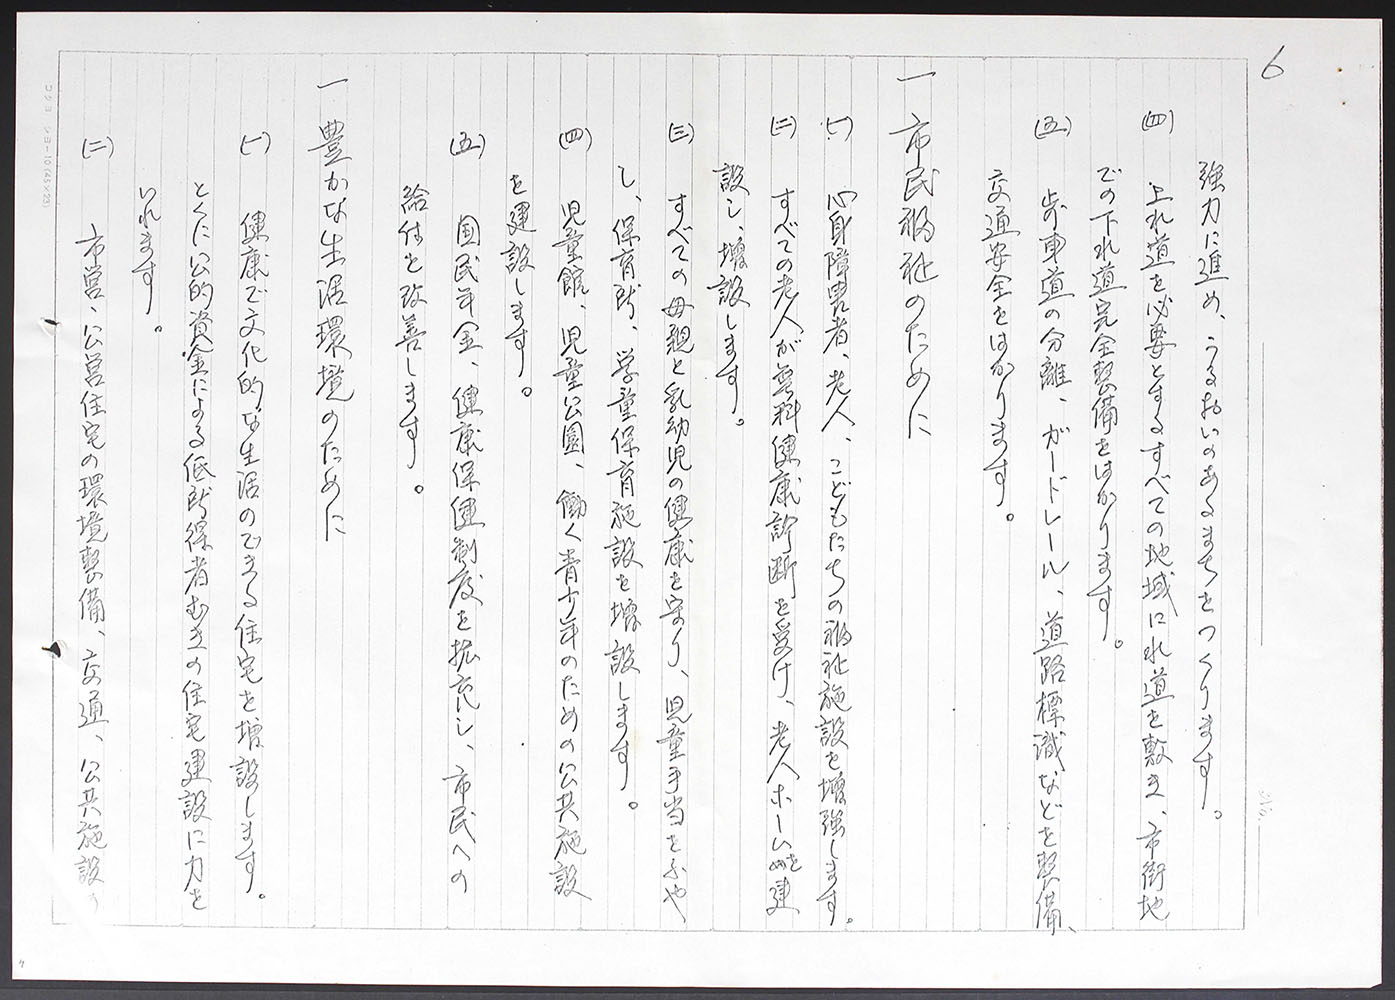 6
強力に進め、うるおいのあるまちをつくります。
(四) 上水道を必要とするすべての地域に水道を敷き、市街地
での下水道完全整備をはかります。
(五) 歩車道の分離、ガードレール、道路標識などを整備、
交通安全をはかります。
一 市民福祉のために
(一) 心身障害者、老人、こどもたちの福祉施設を増強します。
(二) すべての老人が無料健康診断を受け、老人ホームを建
設し、増設します。
(三) すべての母親と乳幼児の健康を守り、児童手当をふや
し、保育所、学童保育施設を増設します。
(四) 児童館、児童公園、働く青少年のための公共施設
を建設します。
(五) 国民年金、健康保健制度を拡充し、市民への
給付を改善します。
一 豊かな生活環境のために
(一) 健康で文化的な生活のできる住宅を増設します。
とくに公的資金による低所得者むきの住宅建設に力を
いれます。
(二) 市営、公営住宅の環境整備、交通、公共施設の
コクヨ シヨー10(45×23)
No.